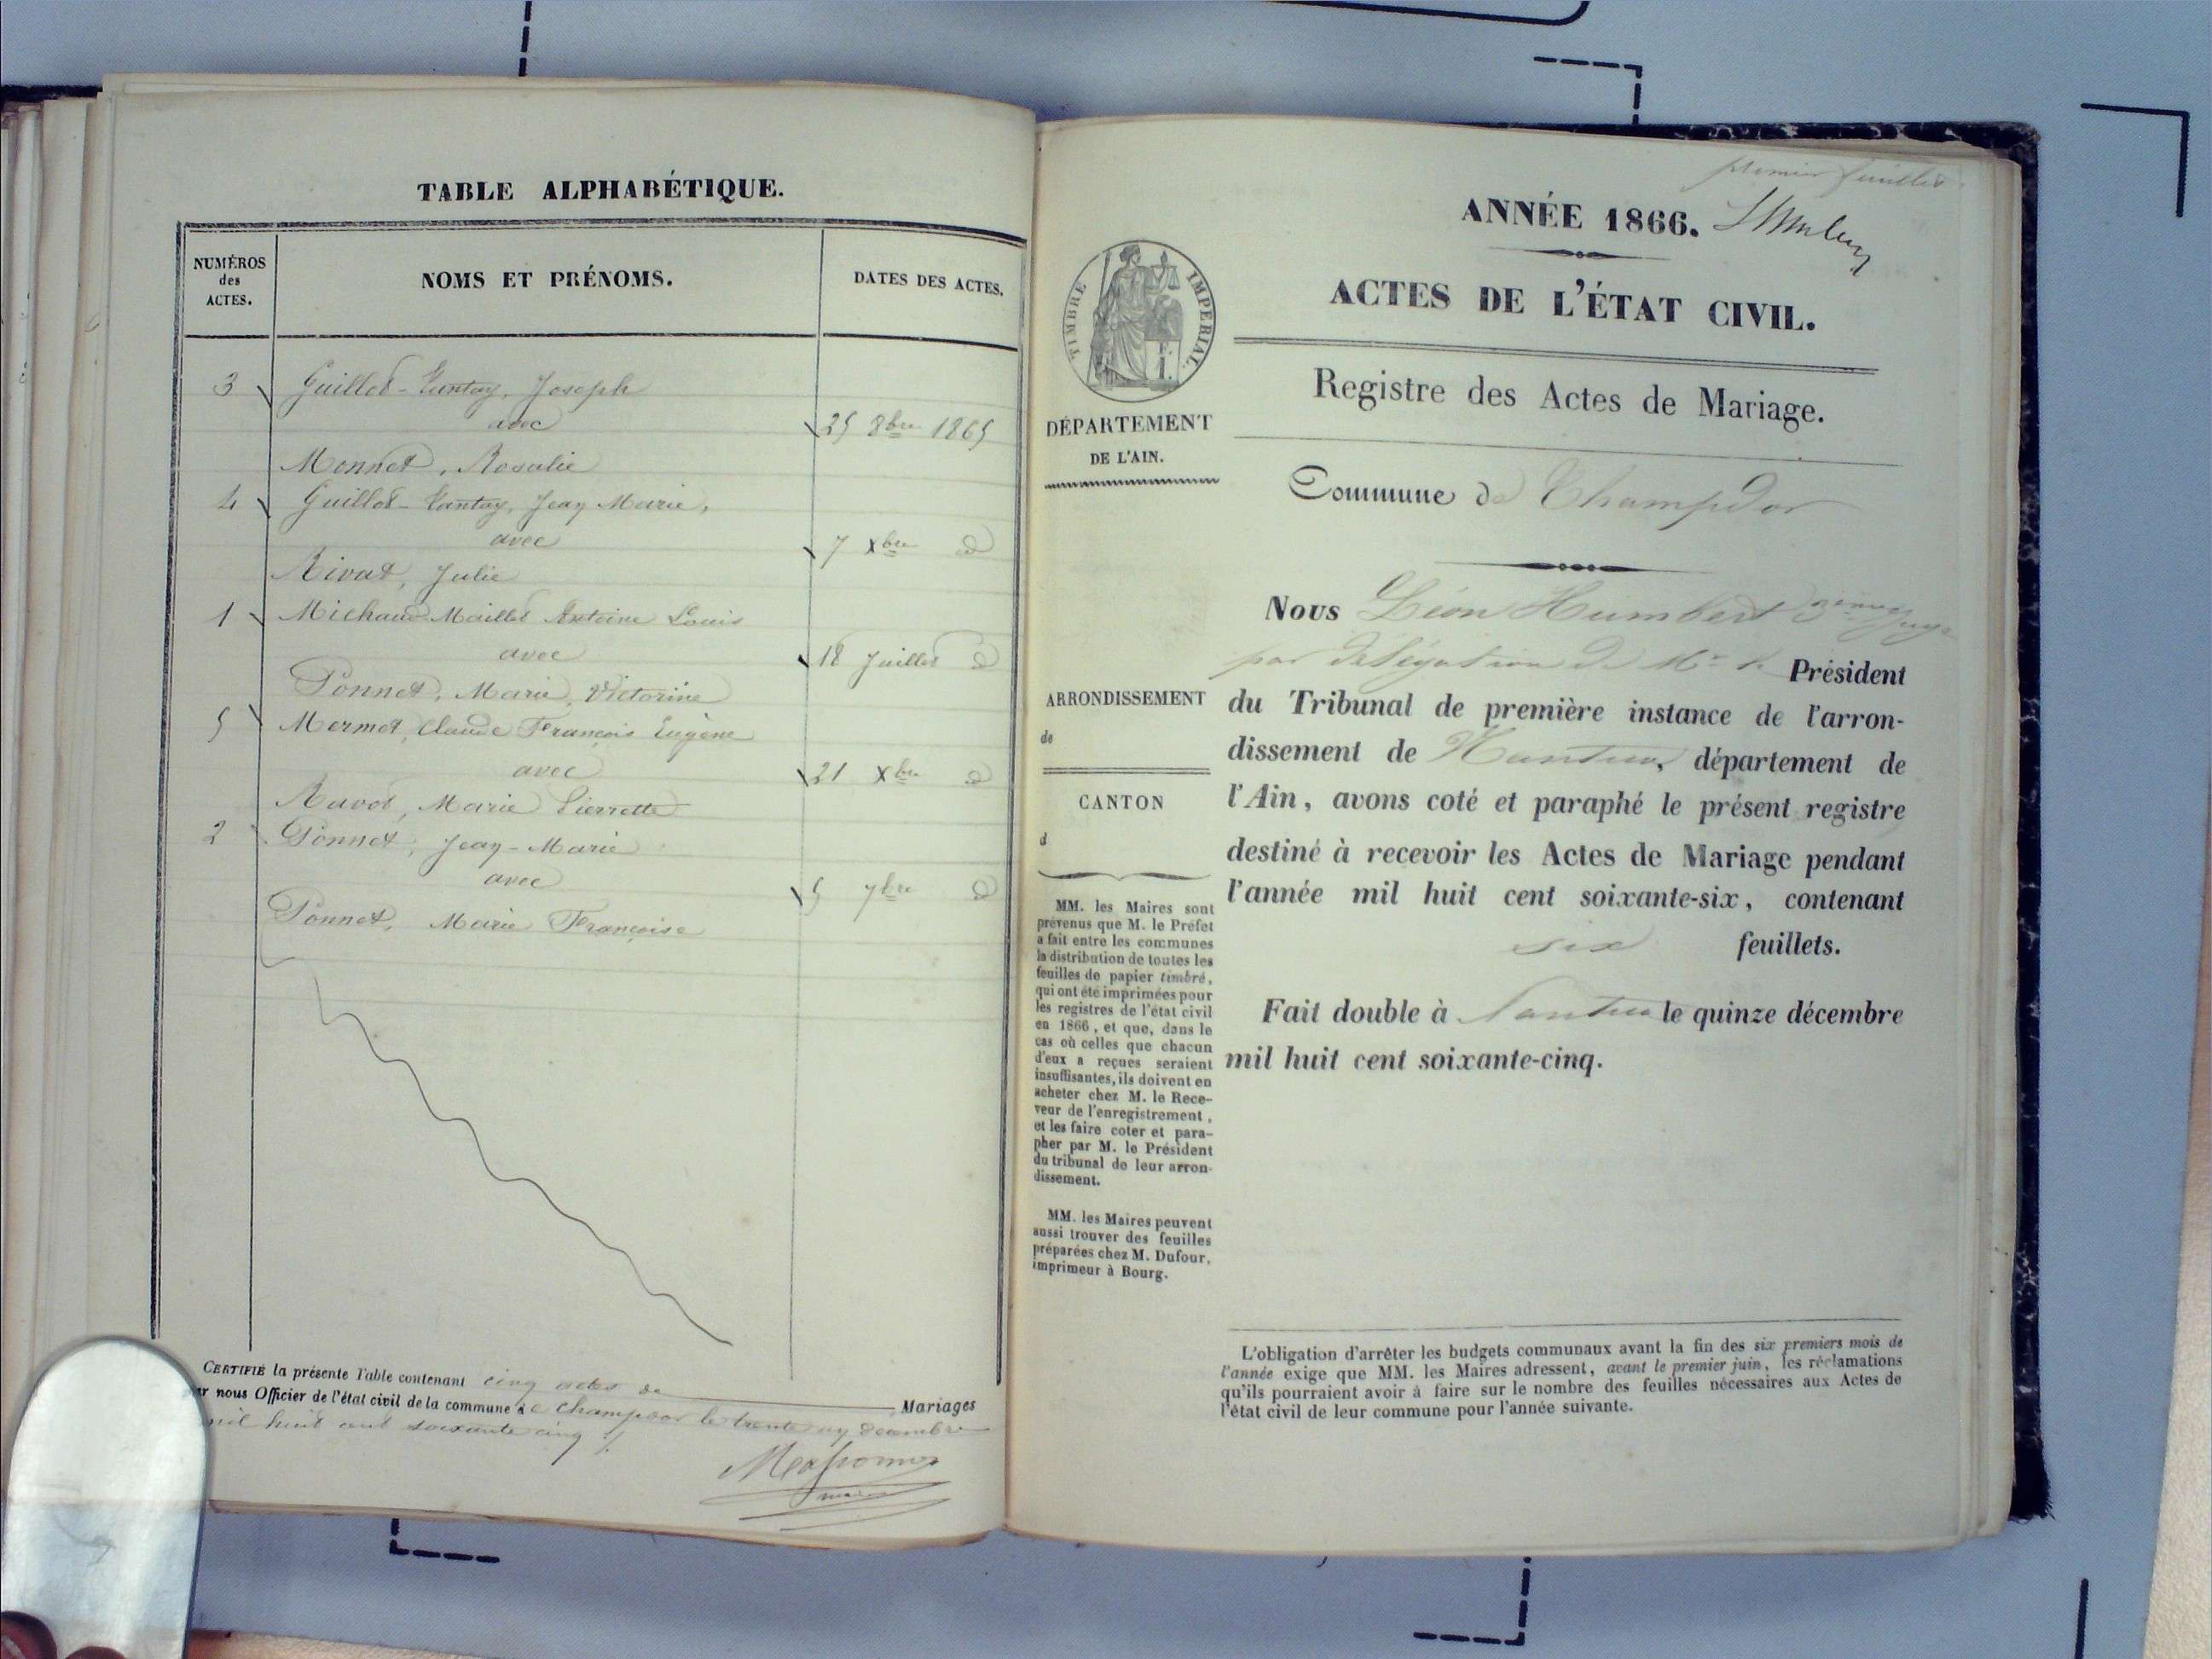 TABLE ALPHABÉTIQUE.
NUMÉROS
des
ACTES.
NOMS ET PRÉNOMS.
DATES DES ACTES.
3 Guillot-Tantay, Joseph
avec
25 8bre 1865
Monnet, Rosalie
4 Guillot-Tantay, Jean Marie,
avec
7 Xbre d
Rivat, Julie
1 Michaud-Maillet Antoine Louis
avec
18 Juillet d
Ponnet, Marie, Victorine
5 Mermet, Claude François Eugène
avec
21 Xbre d
Ravot, Marie Pierrette
2 Ponnet, Jean-Marie
avec
5 7bre d
Ponnet, Marie Françoise
CERTIFIÉ la présente Table contenant cinq actes de
Mariages
nous Officier de l'état civil de la commune de Champdor le trente un décembre
mil huit cent soixante cinq
maire
premier feuillet
ANNÉE 1866.
ACTES DE L'ÉTAT CIVIL.
Registre des Actes de Mariage.
TIMBRE IMPERIAL
DÉPARTEMENT
DE L'AIN.
Commune de Champdor
Nous Léon Humbert Juge
par délégation de Mr le Président
du Tribunal de première instance de l'arron-
dissement de Nantua, département de
l'Ain, avons coté et paraphé le présent registre
destiné à recevoir les Actes de Mariage pendant
l'année mil huit cent soixante-six, contenant
six feuillets.
Fait double à Nantua le quinze décembre
mil huit cent soixante-cinq.
ARRONDISSEMENT
de
CANTON
d
MM. les Maires sont
prévenus que M. le Préfet
a fait entre les communes
la distribution de toutes les
feuilles de papier timbré,
qui ont été imprimées pour
les registres de l'état civil
en 1866, et que, dans le
cas où celles que chacun
d'eux a reçues seraient
insuffisantes, ils doivent en
acheter chez M. le Rece-
veur de l'enregistrement,
et les faire coter et para-
pher par M. le Président
du tribunal de leur arron-
dissement.
MM. les Maires peuvent
aussi trouver des feuilles
préparées chez M. Dufour,
imprimeur à Bourg.
L'obligation d'arrêter les budgets communaux avant la fin des six premiers mois de
l'année exige que MM. les Maires adressent, avant le premier juin, les réclamations
qu'ils pourraient avoir à faire sur le nombre des feuilles nécessaires aux Actes de
l'état civil de leur commune pour l'année suivante.